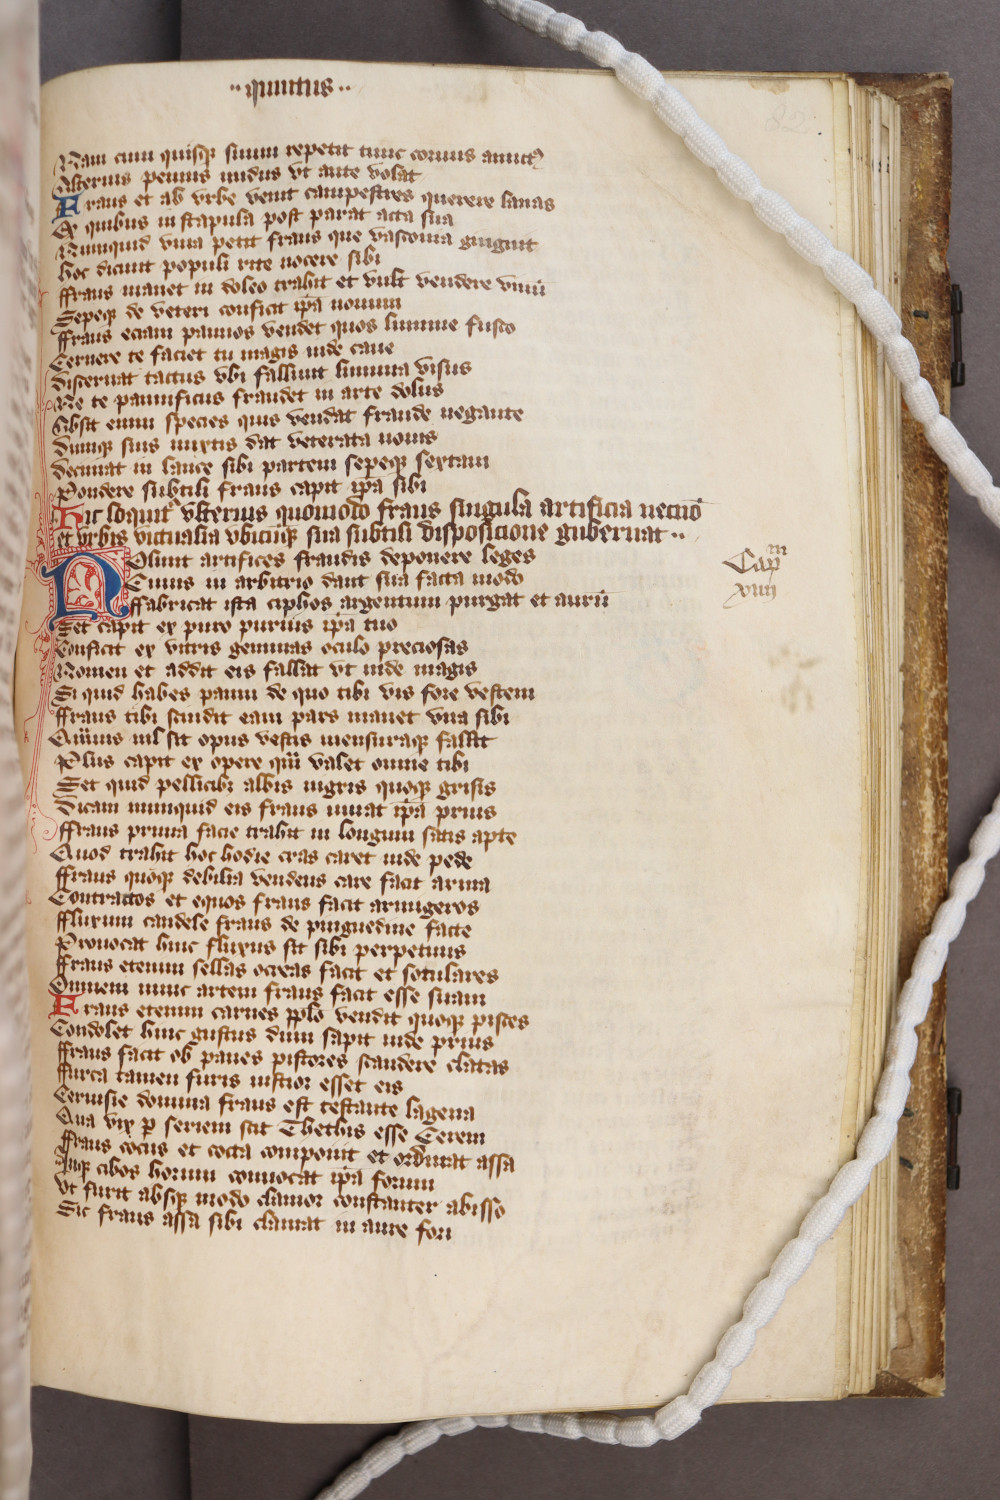 ·· quintus ··
Nam cum quisqꝫ suum repetit tunc coruus amictꝰ
Alterius pennis nudus vt ante volat
Fraus et ab vrbe venit campestres querere lanas
Ex quibus in stapula post parat acta sua
Nunquid vina petit fraus que vasconia gingnit
hoc dicunt populi rite nocere sibi
ffraus manet in doleo trahit et vult vendere vinū
Sepeqꝫ de veteri conficit ip̄a nouum
ffraus eciam pannos vendet quos lumine fusco
Cernere te faciet tu magis inde caue
discernat tactus vbi fallunt lumina visus
Ne te pannificus fraudet in arte dolus
Absit enim species quis vendat fraude negante
dumqꝫ suis mixtis dat veterata nouis
decimat in lance sibi partem sepeqꝫ sextam
Pondere subtili fraus capit ip̄a sibi
Hic loquitᷣ vlterius quomodo fraus singula artificia necnō
et vrbis victualia vbicūqꝫ sua subtili disposicione gubernat ··
Nolunt artifices fraudis deponere leges
Cuius in arbitrio dant sua facta modo
ffabricat ista ciphos argentum purgat et aurū
Capm xiiii
Set capit ex puro purius ip̄a tuo
Conficit ex vitris gemmas oculo preciosas
Nomen et addit eis fallat vt inde magis
Si quid habes panni de quo tibi vis fore vestem
ffraus tibi scindit eam pars manet vna sibi
Quāuis nil sit opus vestis mensuraqꝫ fallit
Plus capit ex opere qͣm valet omne tibi
Set quid pellicibꝫ albis nigris quoqꝫ grisis
dicam nunquid eis fraus iuuat ip̄a prius
ffraus prima facie trahit in longum satis apte
Quod trahit hoc hodie cras caret inde pede
ffraus quoqꝫ debilia vendens care facit arma
Contractos et equos fraus facit armigeros
ffluxum candele fraus de pinguedine facte
Prouocat hinc fluxus sit sibi perpetuus
ffraus etenim sellas ocreas facit et sotulares
Omnem nunc artem fraus facit esse suam
Fraus etenim carnes pp̄lo vendit quoqꝫ pisces
Condolet hinc gustus dum sapit inde prius
ffraus facit ob panes pistores scandere clatas
ffurca tamen furis iustior esset eis
Ceruisie domina fraus est testante lagena
Qua vix ꝑ seriem scit Thethis esse Cerem
ffraus cocus et cocta componit et ordinat assa
Inqꝫ cibos horum conuocat ip̄a forum
Vt furit absqꝫ modo clamor constanter abisso
Sic fraus assa sibi clamat in aure fori